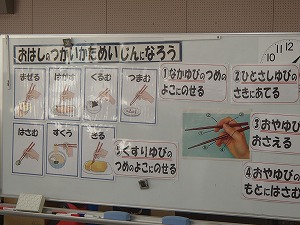 おはしのつかいかためいじんになろう
まぜる
はがす
くるむ
つまむ
はさむ
すくう
きる
①なかゆびのつめの
よこにのせる
②ひとさしゆびの
さきにあてる
③おやゆび
おさえる
④おやゆびの
もとにはさむ
⑤くすりゆびの
つめのよこにのせる